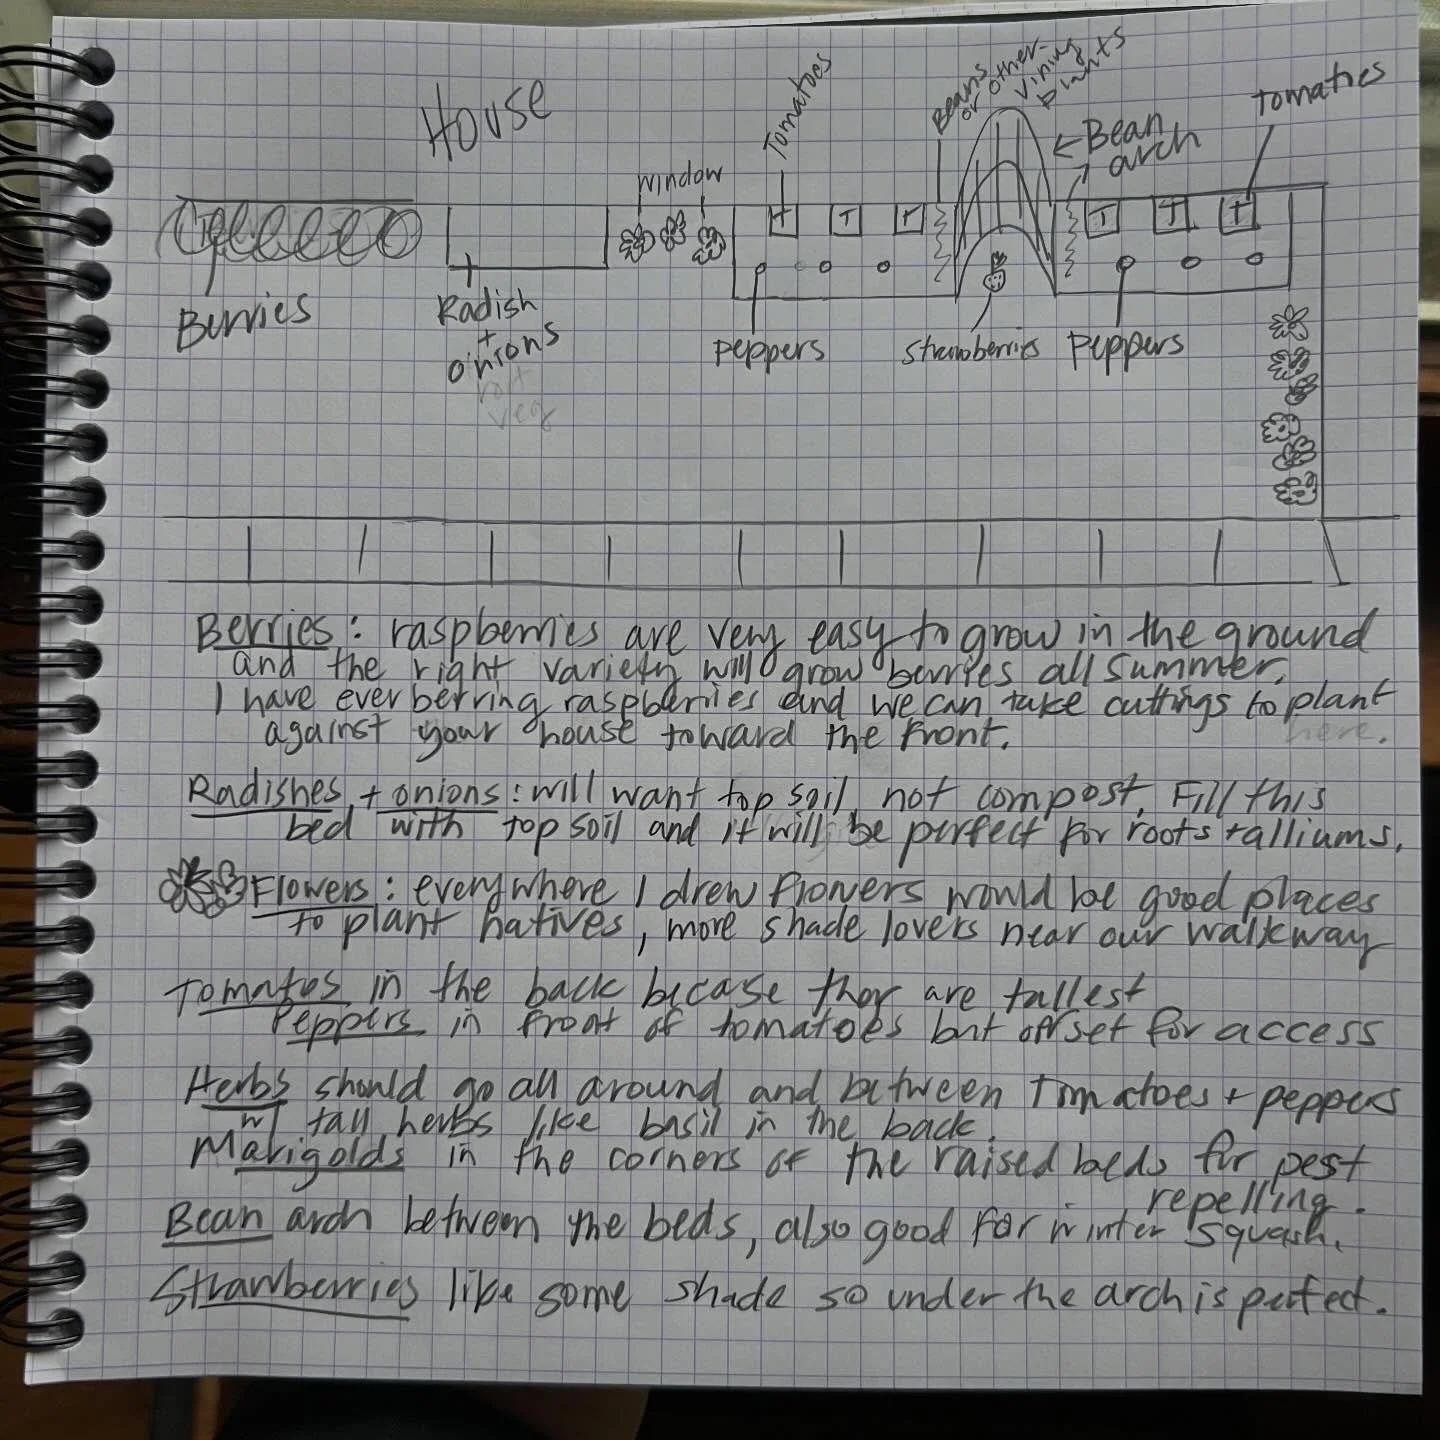 House
Tomatoes
Beans
or other
vining
plants
← Bean
arch
tomaties
window
T
T
T
T
T
T
Berries
Radish
+
onions
root
veg
peppers
strawberries
peppers
Berries: raspberries are very easy to grow in the ground
and the right variety will grow berries all summer.
I have everberring raspberries and we can take cuttings to plant
against your house toward the front. here.
Radishes + onions: will want top soil, not compost. Fill this
bed with top soil and it will be perfect for roots + alliums.
Flowers: everywhere I drew flowers would be good places
to plant natives, more shade lovers near our walkway
Tomatos in the back becase they are tallest
Peppers in front of tomatoes but offset for access
Herbs should go all around and between tomatoes + peppers
w/ tall herbs like basil in the back.
Marigolds in the corners of the raised beds for pest
repelling.
Bean arch between the beds, also good for winter squash.
Strawberries like some shade so under the arch is perfect.